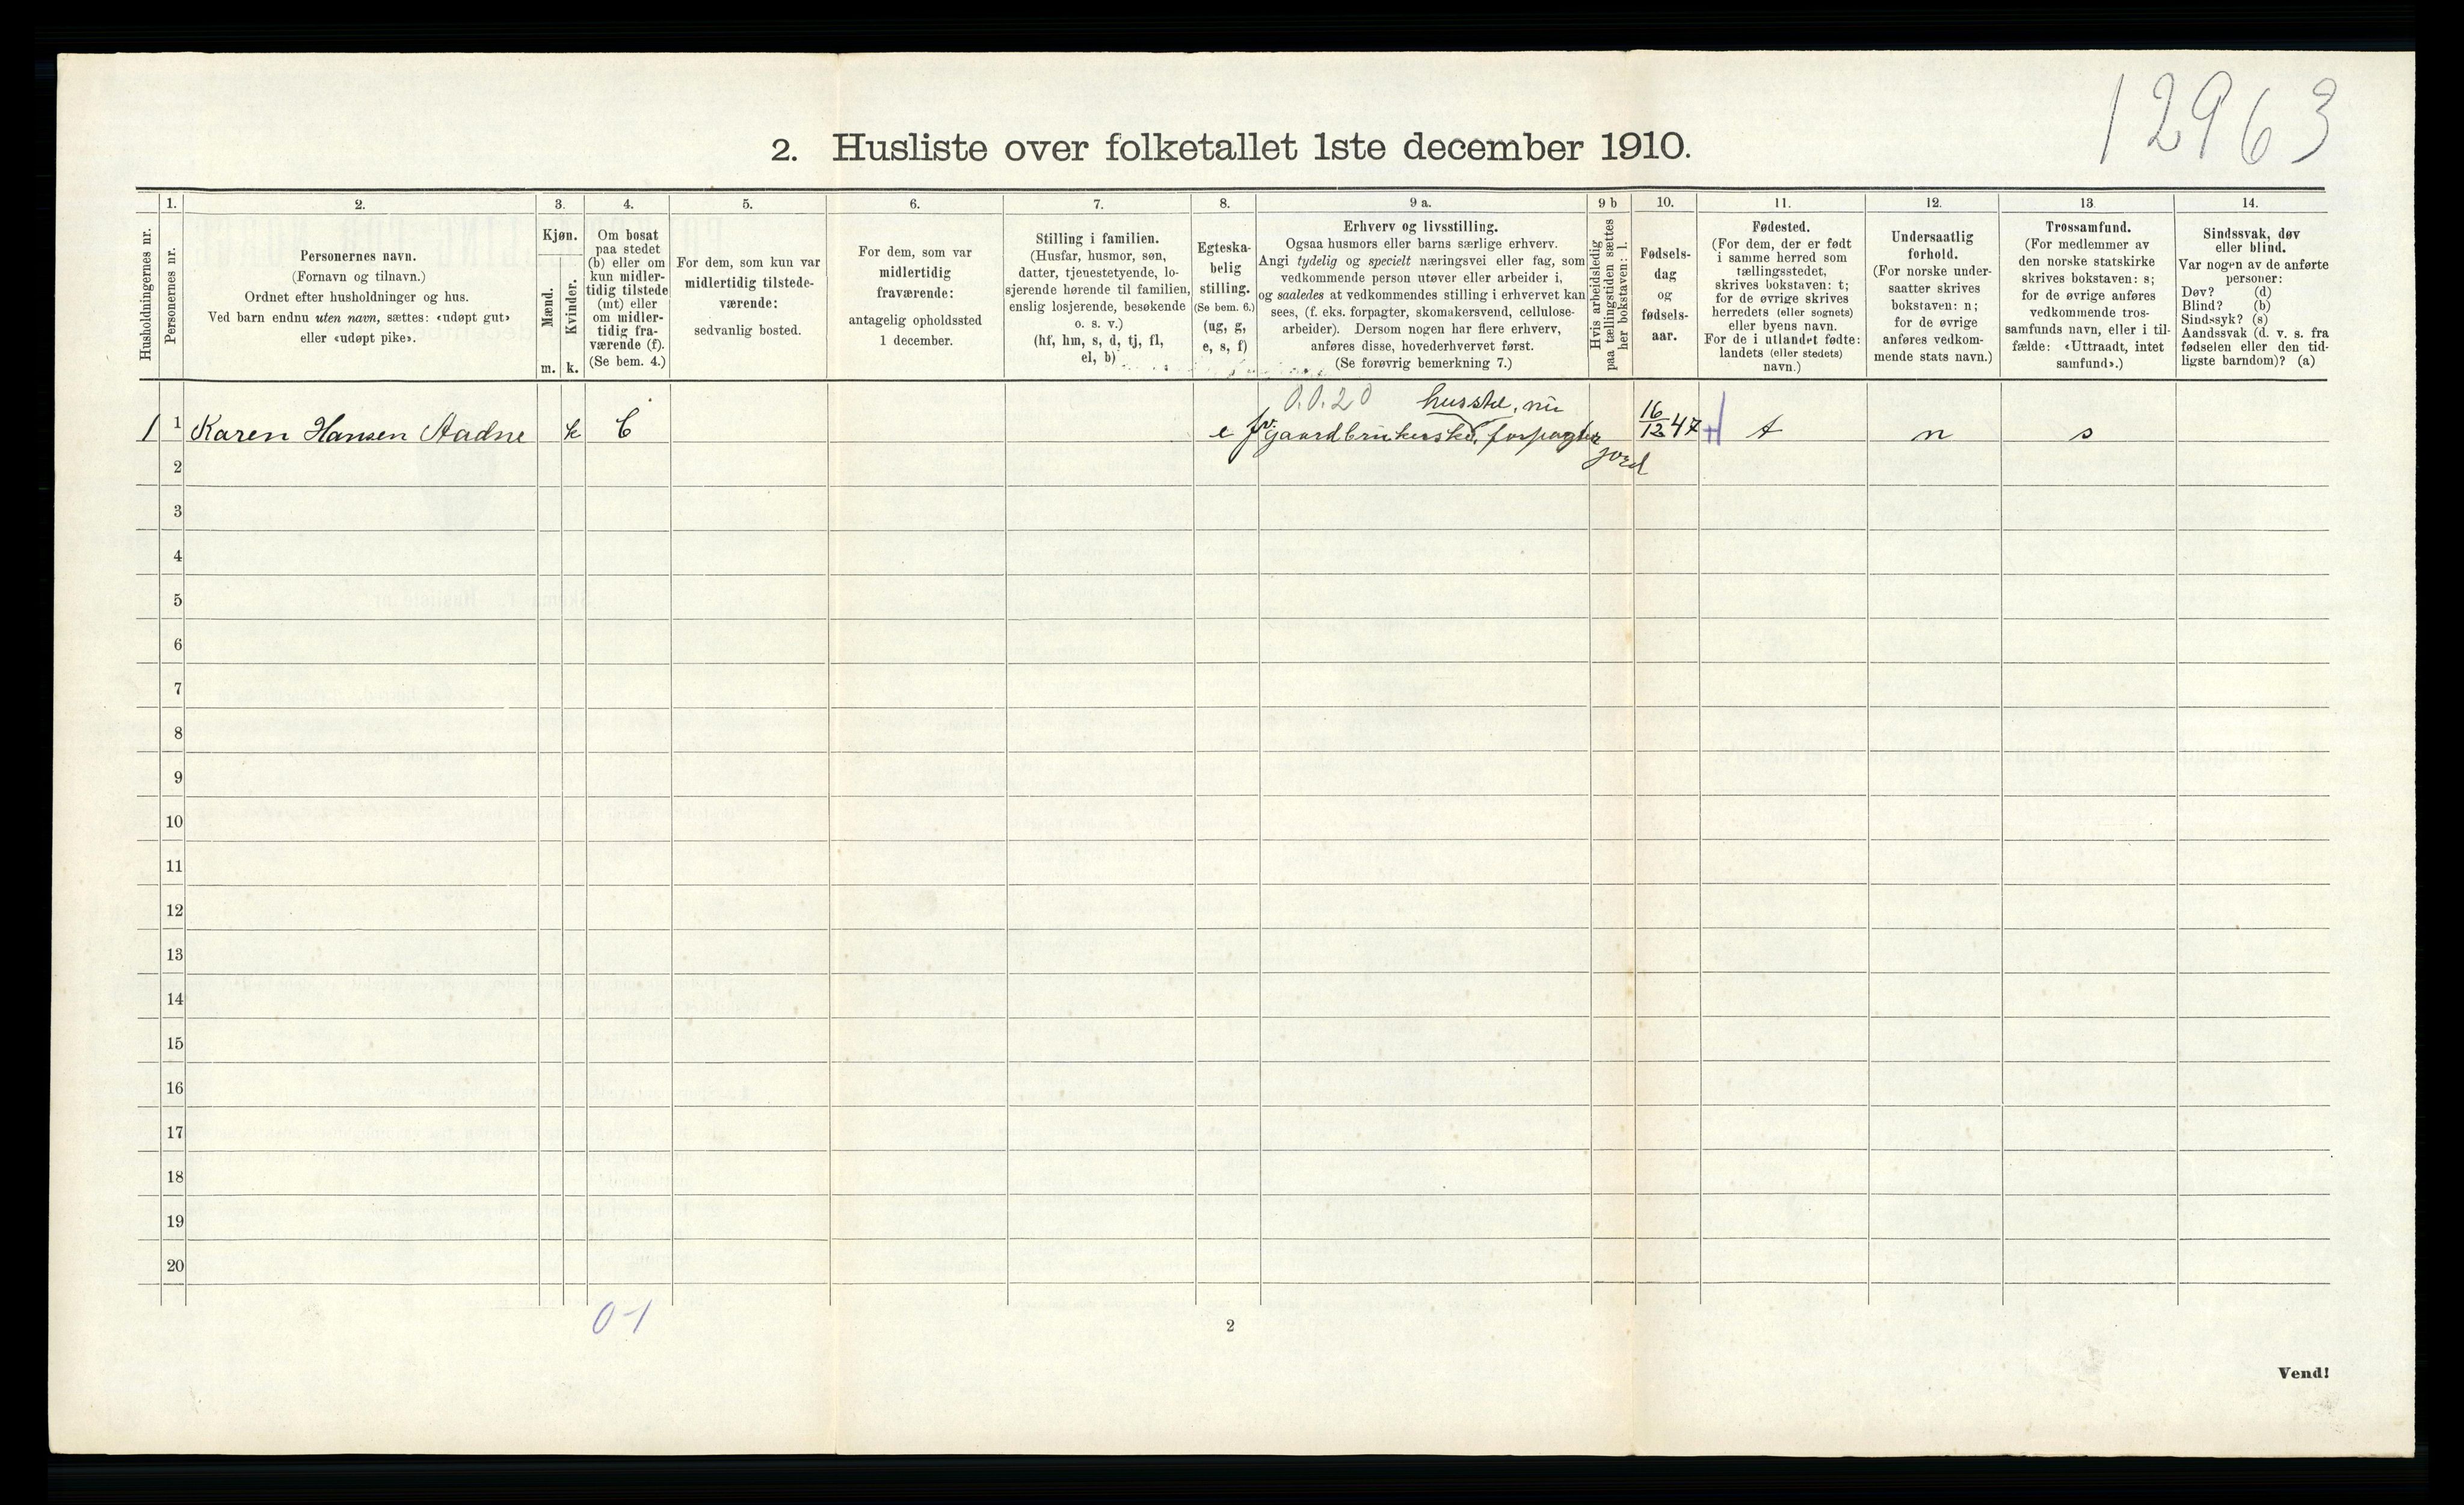 12963
2. Husliste over folketallet 1ste december 1910.
Husholdningernes nr.
1.
Personernes nr.
2.
Personernes navn.
(Fornavn og tilnavn.)
Ordnet efter husholdninger og hus.
Ved barn endnu uten navn, sættes: «udøpt gut»
eller «udøpt pike».
3.
Kjøn.
Mænd.
Kvinder.
m. k.
4.
Om bosat
paa stedet
(b) eller om
kun midler-
tidig tilstede
(mt) eller
om midler-
tidig fra-
værende (f).
(Se bem. 4.)
5.
For dem, som kun var
midlertidig tilstede-
værende:
sedvanlig bosted.
6.
For dem, som var
midlertidig
fraværende:
antagelig opholdssted
1 december.
7.
Stilling i familien.
(Husfar, husmor, søn,
datter, tjenestetyende, lo-
sjerende hørende til familien,
enslig losjerende, besøkende
o. s. v.)
(hf, hm, s, d, tj, fl,
el, b)
8.
Egteska-
belig
stilling.
(Se bem. 6.)
(ug, g,
e, s, f)
9 a.
Erhverv og livsstilling.
Ogsaa husmors eller barns særlige erhverv.
Angi tydelig og specielt næringsvei eller fag, som
vedkommende person utøver eller arbeider i,
og saaledes at vedkommendes stilling i erhvervet kan
sees, (f. eks. forpagter, skomakersvend, cellulose-
arbeider). Dersom nogen har flere erhverv,
anføres disse, hovederhvervet først.
(Se forøvrig bemerkning 7.)
9 b
Hvis arbeidsledig
paa tællingstiden sættes
her bokstaven: l.
10.
Fødsels-
dag
og
fødsels-
aar.
11.
Fødested.
(For dem, der er født
i samme herred som
tællingsstedet,
skrives bokstaven: t;
for de øvrige skrives
herredets (eller sognets)
eller byens navn.
For de i utlandet fødte:
landets (eller stedets)
navn.)
12.
Undersaatlig
forhold.
(For norske under-
saatter skrives
bokstaven: n;
for de øvrige
anføres vedkom-
mende stats navn.)
13
Trossamfund.
(For medlemmer av
den norske statskirke
skrives bokstaven: s;
for de øvrige anføres
vedkommende tros-
samfunds navn, eller i til-
fælde: «Uttraadt, intet
samfund».)
14.
Sindssvak, døv
eller blind.
Var nogen av de anførte
personer:
Døv? (d)
Blind? (b)
Sindssyk? (s)
Aandssvak (d. v. s. fra
fødselen eller den tid-
ligste barndom)? (a)
0.0.20 husstel, nu
1 1 Karen Hansen Aadne k b e fv. gaardbrukerske, forpagter 16/12 47 t n s
jord
2
3
4
5
6
7
8
9
10
11
12
13
14
15
16
17
18
19
20
0-1
2
Vend!